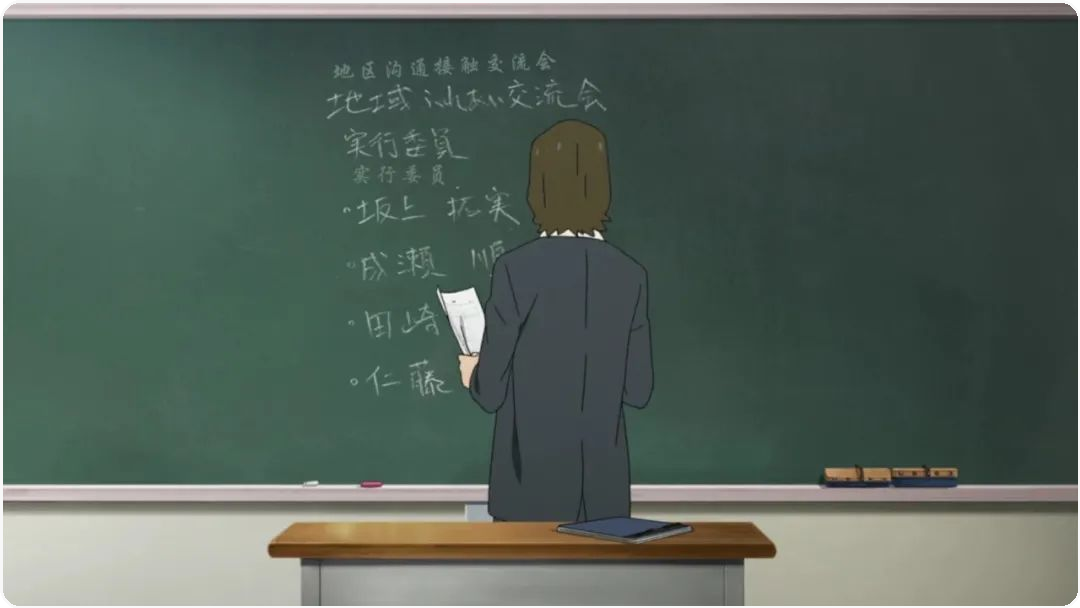 地区沟通接触交流会
地域ふれあい交流会
実行委員
实行委员
・坂上 拓実
・成瀬 順
・田崎
・仁藤